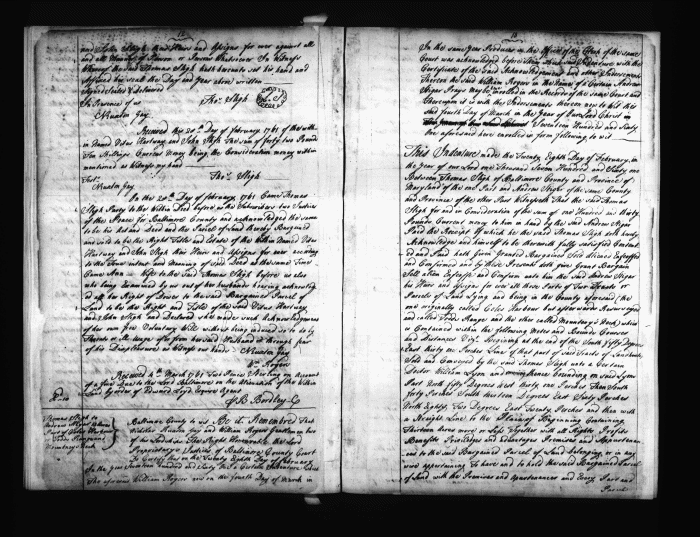 and John Sligh their Heirs and Assigns for ever against all
and all Manner of Person or Persons Whatsoever In Witness
Whereof the said Thomas Sligh hath hereunto set his hand and
Affixed his seal the Day and Year above written
Signed Sealed & delivered
In Presence of us
Thos. Sligh
N Ruxton Gay
Received this 28th Day of february 1761 of the within
named Vitus Hartway and John Sligh the sum of forty two Pounds
Ten Shillings Current Money being the Consideration money within
mentioned as Witness my hand
Thos. Sligh
Test.
N Ruxton Gay
In the 28th Day of february 1761 Came Thomas
Sligh Party to the Within Deed before us the Subscribers two Justices
of the Peace for Baltimore County and acknowledged the same
to be his Act and Deed and the Parcel of Land thereby Bargained
and sold to be the Right Title and Estate of the within Named Vitus
Hartway and John Sligh their Heirs and Assigns for ever according
to the True intent and Meaning of said Deed at the same Time
Came Ann Wife to the said Thomas Sligh before us also
who being Examined by us out of her husbands hearing acknowledged
all her Right of Dower to the said Bargained Parcel of
Land to be the Right and Title of the said Vitus Hartway
and John Sligh and Declared she made such Acknowledgment
of her own free Voluntary Will without being induced so to do by
Threats or Ill usage or for fear
of his Displeasure as Witness our hands
N Ruxton Gay
Wm Rogers
Received 4th March 1761
of a fine due to the Lord Baltimore on the Alienation of the Within
Land by order of Edward Lloyd Esquire Agent
B Bordley Co
Thomas Sligh to
Andrew Stiger
Part of Coles Harbour
Todds Range and
Mountenays Neck
Baltimore County to wit Be it Remembred That
William Rogers Gentlemen two
of his Lordships The Right Honourable the Lord
Proprietarys Justices of Baltimore County Court
Do Certify that on the Twenty Eighth Day of February
In the Year Seventeen Hundred and Sixty One a Certain Indenture
The aforesaid William Rogers and on the fourth Day of March in
18
In the same Year Produces in the Office of the Clerk of the same
Court was acknowledged before them
Certificate of the said Acknowledgement and other Indorsements
Thereon the said William Rogers in the Name of a Certain Andrew
Stiger Prays may be enrolled in the Records of the same County Court and
Thereupon it is with the Indorsements thereon now to wit this
said fourth Day of March in the Year of our Lord Christ
Seventeen Hundred and Sixty
One aforesaid here enrolled in form following to wit
This Indenture made the Twenty Eighth Day of February in
the Year of our Lord one Thousand Seven Hundred and Sixty one
Between Thomas Sligh of Baltimore County and Province of
Maryland of the one Part and Andrew Stiger of the same County
and Province of the other Part Witnesseth that the said Thomas
Sligh for and in Consideration of the sum of One Hundred and thirty
Pounds Current money to him in hand by the said Andrew Stiger
Paid the Receipt Whereof he the said Thomas Sligh doth hereby
Acknowledge and himself to be therewith fully satisfied Contented
and Paid hath given Granted Bargained Sold Aliened Enfeoffed
and Confirmed and by these Presents doth give Grant Bargain
Sell Alien Enfeoff and Confirm unto him the said Andrew Stiger
his Heirs and Assigns for ever all those Parts of Two Tracts or
Parcels of Land Lying and being in the County aforesaid (the
one originally called Coles Harbour but afterwards Resurveyed
and called Todds Range and the other called Mountenay's Neck) which
is Contained within the following Metes and Bounds Courses
and Distances Viz. Beginning at the end of the South fifty Degrees
East thirty one Perches Line of that part of said Tracts of Land
Sold and Conveyed by the said Thomes Sligh unto a Certain
Doctor William Lyon and
Part North fifty Degrees West thirty one Perches Then South
forty Perches South thirteen Degrees East Sixty Perches
North Eighty Two Degrees East Twenty Perches and then with
a Straight Line to the Place of Beginning Containing
Thirteen Acres more or Less Together with all Rights Profits
Benefits Priviledges and Advantages Premises and Appurtenan-
ces to the said Bargained Parcel of Land belonging or in any
wise appertaining To have and to hold the said Bargained Parcel
of Land with the Premises and Appurtenances and Every Part and
Parcel